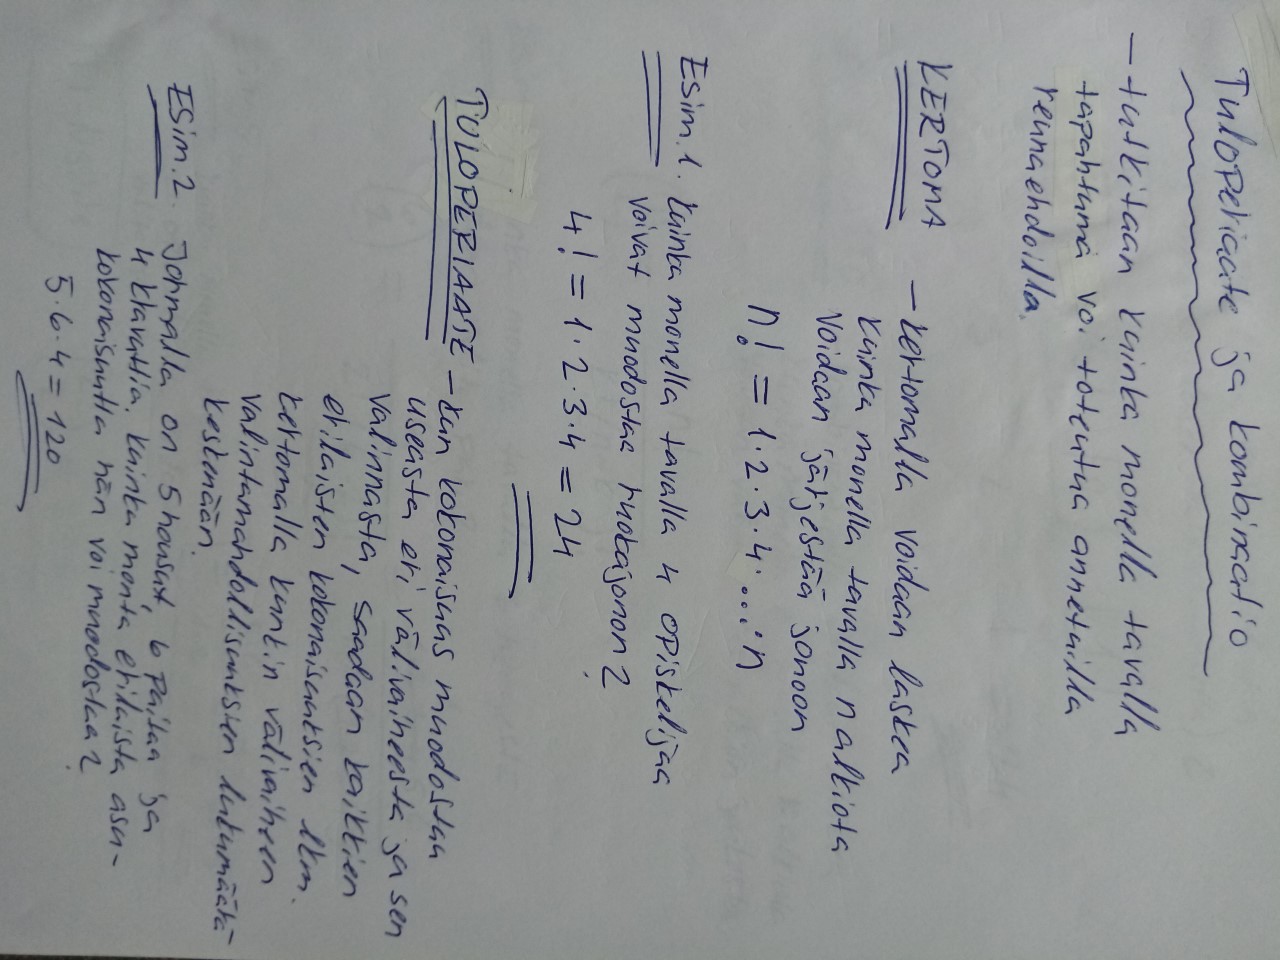 Tuloperiaate ja kombinaatio
- tutkitaan kuinka monella tavalla
tapahtuma voi toteutua annetuilla
reunaehdoilla.
KERTOMA - kertomalla voidaan laskea
kuinka monella tavalla n alkiota
voidaan järjestää jonoon
n! = 1·2·3·4·...·n
Esim. 1. Kuinka monella tavalla 4 opiskelijaa
voivat muodostaa ruokajonon?
4! = 1·2·3·4 = 24
TULOPERIAATE - kun kokonaisuus muodostuu
useasta eri välivaiheesta ja sen
valinnasta, saadaan kaikkien
erilaisten kokonaisuuksien lkm.
kertomalla kunkin välivaiheen
valintamahdollisuuksien lukumäärä-
keskenään.
Esim. 2 Jormalla on 5 housut, 6 paitaa ja
4 kravattia. Kuinka monta erilaista asu-
kokonaisuutta hän voi muodostaa?
5·6·4 = 120